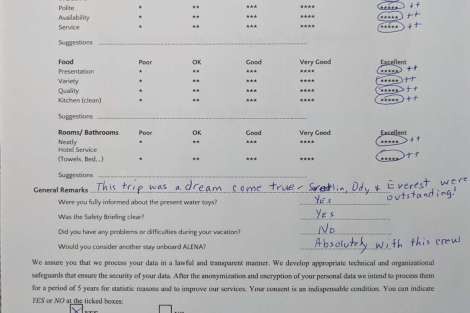 Polite * ** *** **** ***** ++
Availability * ** *** **** ***** ++
Service * ** *** **** ***** ++
Suggestions
Food Poor OK Good Very Good Excellent
Presentation * ** *** **** ***** ++
Variety * ** *** **** ***** ++
Quality * ** *** **** ***** ++
Kitchen (clean) * ** *** **** ***** ++
Suggestions
Rooms/ Bathrooms Poor OK Good Very Good Excellent
Neatly * ** *** **** ***** ++
Hotel Service
(Towels, Bed...) * ** *** **** ***** ++
Suggestions
General Remarks This trip was a dream come true - Ody, & Everest were outstanding!
Were you fully informed about the present water toys? Yes
Was the Safety Briefing clear? Yes
Did you have any problems or difficulties during your vacation? No
Would you consider another stay onboard ALENA? Absolutely with this crew
We assure you that we process your data in a lawful and transparent manner. We develop appropriate technical and organizational
safeguards that ensure the security of your data. After the anonymization and encryption of your personal data we intend to process them
for a period of 5 years for statistic reasons and to improve our services. Your consent is an indispensable condition. You can indicate
YES or NO at the ticked boxes: